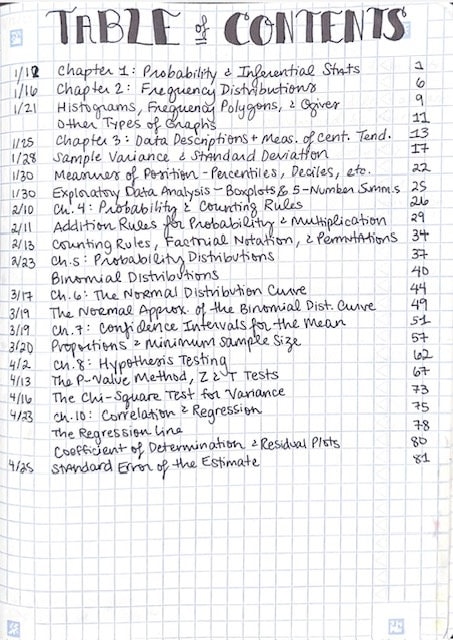 TABLE of CONTENTS
1/12 Chapter 1: Probability & Inferential Stats 1
1/16 Chapter 2: Frequency Distributions 6
1/21 Histograms, Frequency Polygons, & Ogives 9
Other Types of Graphs 11
1/25 Chapter 3: Data Descriptions + Meas. of Cent. Tend. 13
1/28 Sample Variance & Standard Deviation 17
1/30 Measures of Position - Percentiles, Deciles, etc. 22
1/30 Exploratory Data Analysis - Boxplots & 5-Number Summ.s 25
2/10 Ch. 4: Probability & Counting Rules 26
2/11 Addition Rules for Probability & Multiplication 29
2/13 Counting Rules, Factorial Notation, & Permutations 34
2/23 Ch. 5: Probability Distributions 37
Binomial Distributions 40
3/17 Ch. 6: The Normal Distribution Curve 44
3/19 The Normal Approx. of the Binomial Dist. Curve 49
3/19 Ch. 7: Confidence Intervals for the Mean 51
3/20 Proportions & Minimum Sample Size 57
4/2 Ch. 8: Hypothesis Testing 62
4/13 The P-Value Method, Z & T Tests 67
4/16 The Chi-Square Test for Variance 73
4/23 Ch. 10: Correlation & Regression 75
The Regression Line 78
Coefficient of Determination & Residual Plots 80
4/25 Standard Error of the Estimate 81